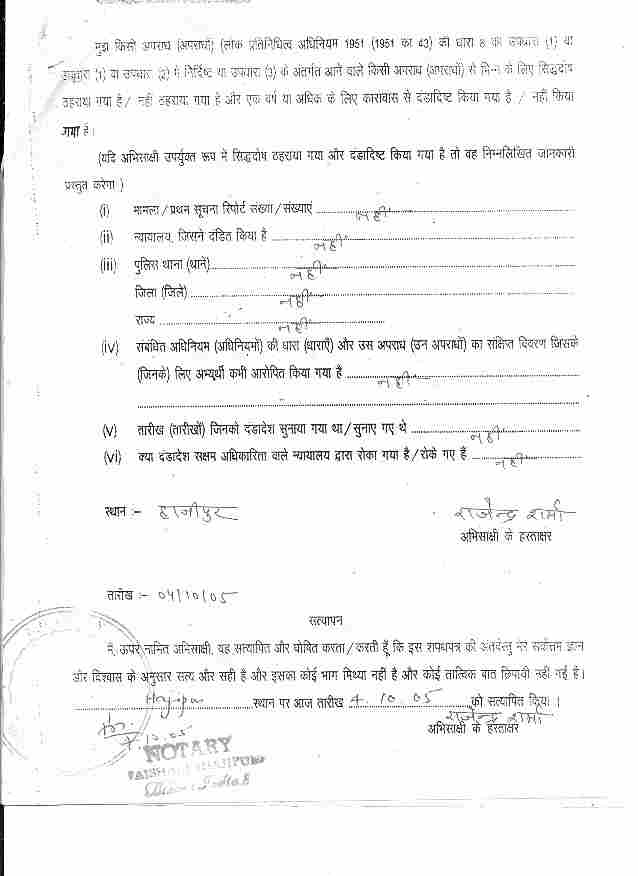 मुझे किसी अपराध (अपराधों) (लोक प्रतिनिधित्व अधिनियम 1951 (1951 का 43) की धारा 8 की उपधारा (1) या
उपधारा (1) या उपधारा (2) में निर्दिष्ट या उपधारा (3) के अंतर्गत आने वाले किसी अपराध (अपराधों) से भिन्न के लिए सिद्धदोष
ठहराया गया है / नहीं ठहराया गया है और एक वर्ष या अधिक के लिए कारावास से दंडादिष्ट किया गया है / नहीं किया
गया है।
(यदि अभिसाक्षी उपर्युक्त रूप में सिद्धदोष ठहराया गया और दंडादिष्ट किया गया है तो वह निम्नलिखित जानकारी
प्रस्तुत करेगा)
(i) मामला / प्रथम सूचना रिपोर्ट संख्या / संख्याएं नहीं
(ii) न्यायालय, जिसने दंडित किया है नहीं
(iii) पुलिस थाना (थाने) नहीं
जिला (जिले) नहीं
राज्य नहीं
(iv) संबंधित अधिनियम (अधिनियमों) की धारा (धाराएँ) और उस अपराध (उन अपराधों) का संक्षिप्त विवरण जिसके
(जिनके) लिए अभ्यर्थी कभी आरोपित किया गया है नहीं
(v) तारीख (तारीखों) जिनको दंडादेश सुनाया गया था / सुनाए गए थे नहीं
(vi) क्या दंडादेश सक्षम अधिकारिता वाले न्यायालय द्वारा रोका गया है / रोके गए हैं नहीं
स्थान :- हाजीपुर राजेन्द्र शर्मा
अभिसाक्षी के हस्ताक्षर
तारीख :- 04/10/05
सत्यापन
मैं, ऊपर नामित अभिसाक्षी, यह सत्यापित और घोषित करता / करती हूँ कि इस शपथपत्र की अंतर्वस्तु मेरे सर्वोत्तम ज्ञान
और विश्वास के अनुसार सत्य और सही है और इसका कोई भाग मिथ्या नहीं है और कोई तात्विक बात छिपायी नहीं गई है।
Hajipur स्थान पर आज तारीख 4.10.05 को सत्यापित किया।
राजेन्द्र शर्मा
अभिसाक्षी के हस्ताक्षर
4.10.05
NOTARY
VAISHALI HAJIPUR